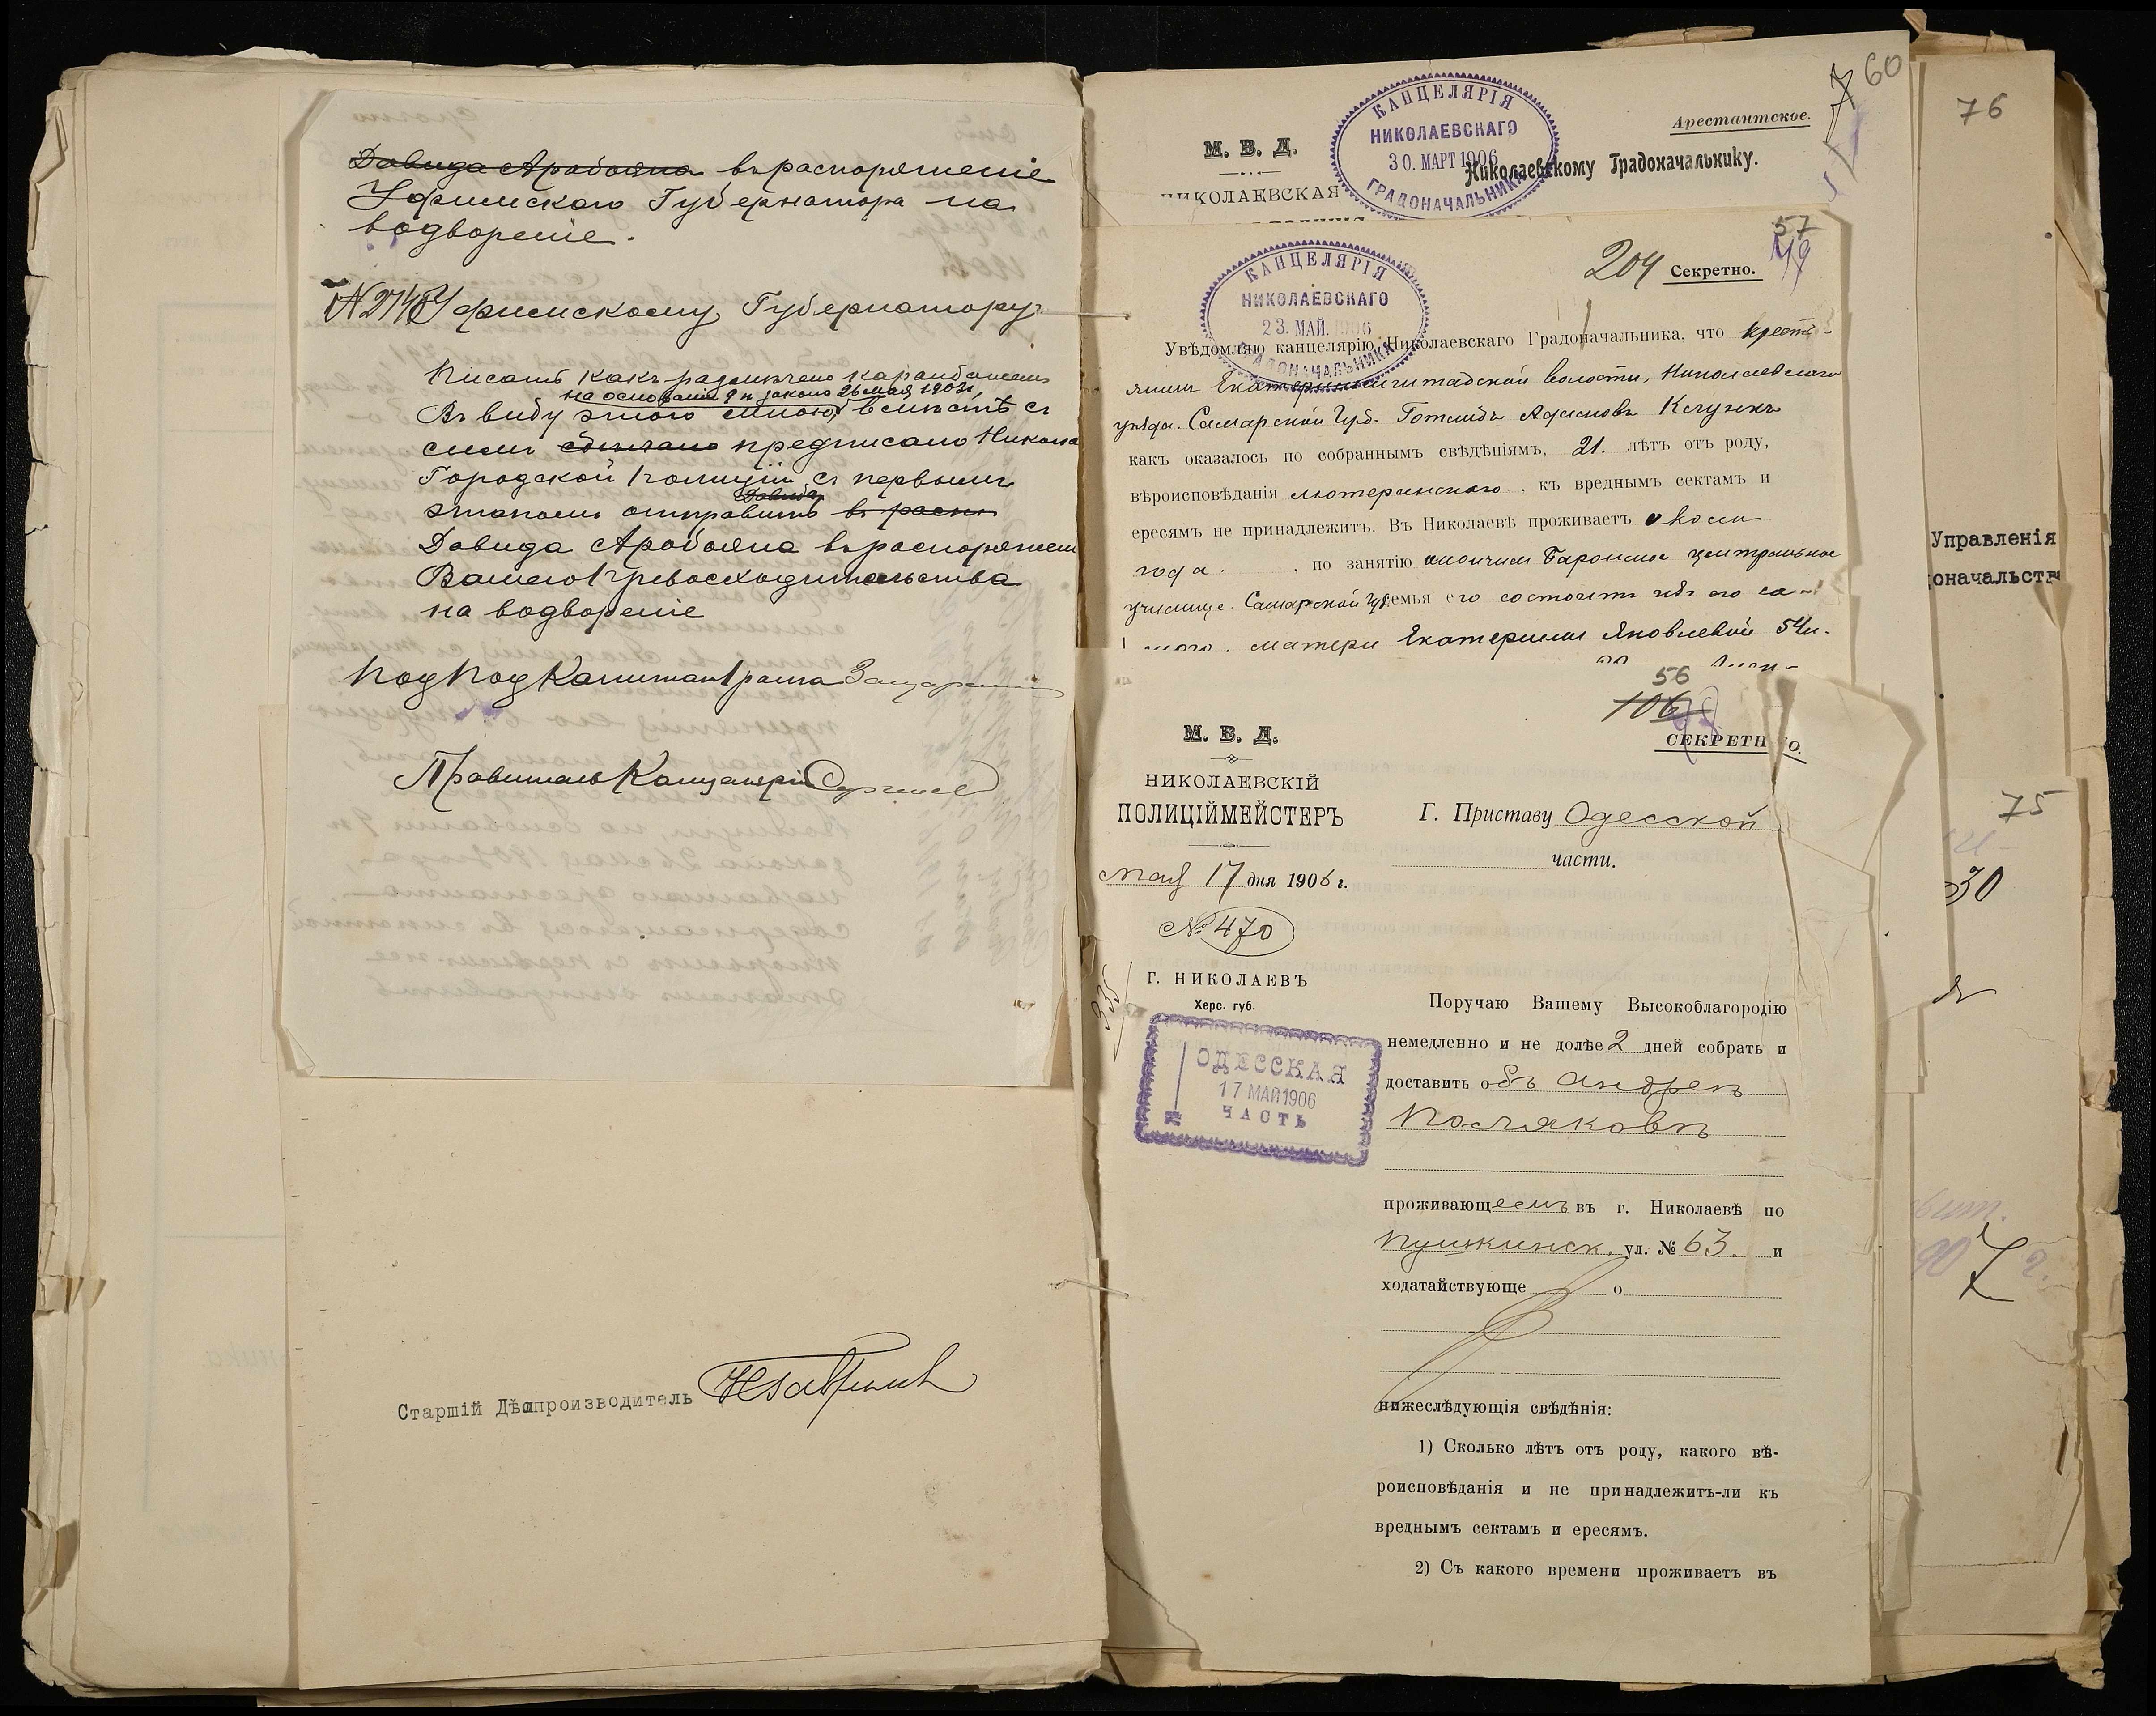 Давида Арабояна въ распоряженіе
Уфимскаго Губернатора на
водвореніе.
Уфимскому Губернатору
Писать какъ размѣчено карандашемъ
на основаніи 9 п закона 26 мая 1903 г,
Въ виду этого мною вмѣстѣ съ
симъ предписано
Городской полиціи съ первымъ
Давида
этапомъ отправить въ расп
Давида Арабояна въ распоряжен
Вашего Превосходительства
на водвореніе
Правитель Канцеляріи
Старшій Дѣлопроизводитель
60
М. В. Д.
НИКОЛАЕВСКАЯ
КАНЦЕЛЯРІЯ
НИКОЛАЕВСКАГО
30. МАРТ 1906
ГРАДОНАЧАЛЬНИКА
Арестантское.
Николаевскому Градоначальнику.
57
204 Секретно.
КАНЦЕЛЯРІЯ
НИКОЛАЕВСКАГО
23. МАЙ. 1906
ГРАДОНАЧАЛЬНИКА
Увѣдомляю канцелярію Николаевскаго Градоначальника, что крестья-
нинъ волости, Николаевскаго
уѣзда. Самарской Губ. Готлибъ Адамовъ
какъ оказалось по собраннымъ свѣдѣніямъ, 21. лѣтъ отъ роду,
вѣроисповѣданія лютеранскаго, къ вреднымъ сектамъ и
ересямъ не принадлежитъ. Въ Николаевѣ проживаетъ около
года. по занятію окончилъ центральное
училище. Самарской губ. семья его состоитъ изъ его са-
мого. матери Екатерины Яковлевой 54 л.
56
106
М. В. Д.
НИКОЛАЕВСКІЙ
ПОЛИЦІЙМЕЙСТЕРЪ
Мая 17 дня 1906 г.
№ 470
Г. НИКОЛАЕВЪ
Херс. губ.
ОДЕССКАЯ
17 МАЯ 1906
ЧАСТЬ
№
СЕКРЕТНО.
Г. Приставу Одесской
части.
Поручаю Вашему Высокоблагородію
немедленно и не долѣе 2 дней собрать и
доставить объ Андреѣ
Поляковѣ
проживающемъ въ г. Николаевѣ по
Пушкинск. ул. № 63. и
ходатайствующе о
нижеслѣдующія свѣдѣнія:
1) Сколько лѣтъ отъ роду, какого вѣ-
роисповѣданія и не принадлежитъ-ли къ
вреднымъ сектамъ и ересямъ.
2) Съ какого времени проживаетъ въ
76
Управленія
оначальств
75
30